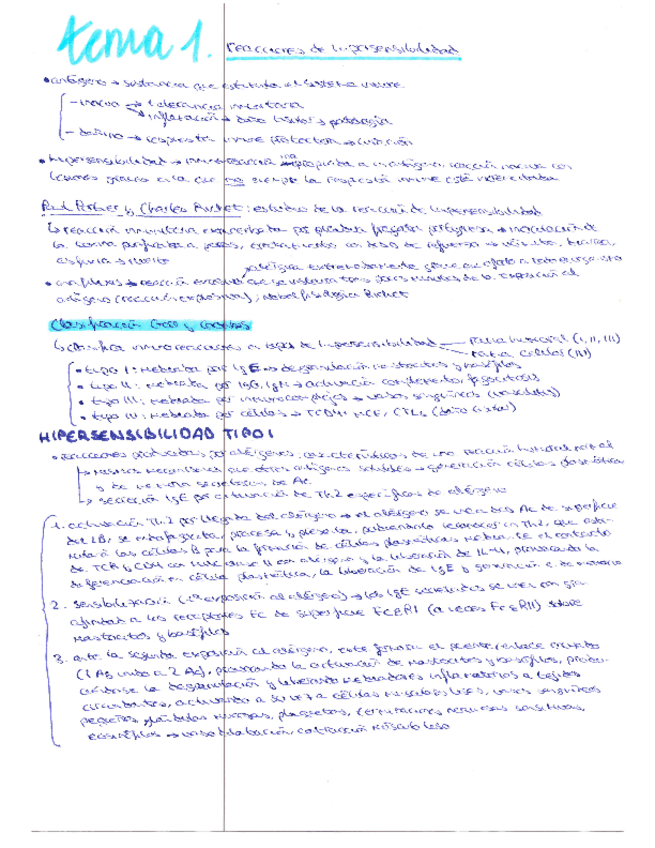 tema 1. Reacciones de hipersensibilidad
• antígeno → sustancia que estimula el sistema inmune
- inocua → tolerancia inmunitaria
→ inflamación → daño tisular → patología
- dañino → respuesta inmune protectora → curación
• Hipersensibilidad → inmunoreacción inapropiada a un antígeno, reacción nociva con
lesiones graves en la que no siempre la respuesta inmune está
Paul Portier y Charles Richet: estudio de la reacción de hipersensibilidad
↳ reacción inmunitaria por → inoculación de
la toxina purificada a perros, con dosis de refuerzo → vómitos, diarrea,
asfixia → muerte
alérgica extremadamente grave que afecta a todo el organismo
• anafilaxis → reacción que se instaura tras pocos minutos de la exposición al
antígeno (reacción explosiva), Nobel fisiología Richet
Clasificación Gell y Coombs
↳ clasifica inmunoreacciones 4 tipos de hipersensibilidad — rama humoral (I, II, III)
rama celular (IV)
• tipo I: mediada por IgE → degranulación mastocitos y basófilos
• tipo II: mediada por IgG, IgM → activación complemento, fagocitosis
• tipo III: mediada por inmunocomplejos → vasos sanguíneos (vasculitis)
• tipo IV: mediada por células → TCD4: MCF, CTLs (daño tisular)
HIPERSENSIBILIDAD TIPO I
• reacciones producidas por alérgenos: características de una reacción humoral normal
↳ mismos mecanismos que otros antígenos solubles → generación células plasmáticas
y de memoria secretoras de Ac
↳ secreción IgE por activación de Th2 específicos de alérgeno
1. activación Th2 por llegada del alérgeno → el alérgeno se une a los Ac de superficie
del LB, se procesa y presenta, pudiendo reconocer en Th2, que
a las células B para la formación de células plasmáticas mediante el contacto
de TCR y CD4 con MHC clase II con alérgeno y la liberación de IL-4, provocando la
diferenciación en célula plasmática, la liberación de IgE y generación c. de memoria
2. sensibilización (1ª exposición al alérgeno) → los IgE secretados se unen con gran
afinidad a los receptores Fc de superficie FcεRI (a veces FcεRII) sobre
mastocitos y basófilos
3. ante la segunda exposición al alérgeno, este genera el puente/enlace cruzado
(1 Ag unido a 2 Ac), provocando la activación de mastocitos y basófilos,
la degranulación y liberando mediadores inflamatorios a tejidos
circundantes, activando a su vez a células musculares lisas, vasos sanguíneos
pequeños, glándulas mucosas, plaquetas, terminaciones nerviosas sensitivas,
eosinófilos → vasodilatación, contracción músculo liso